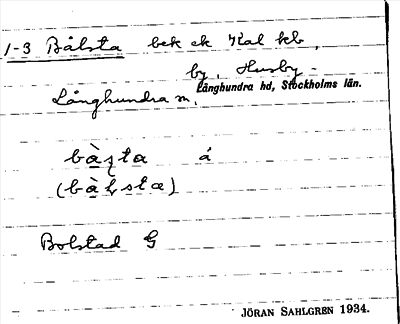 1-3 Bålsta bek ek Kal kb,
by, Husby-
Långhundra hd, Stockholms län.
Långhundra sn.
bàsta å
(bàlsta)
Bolstad G
JÖRAN SAHLGREN 1934.